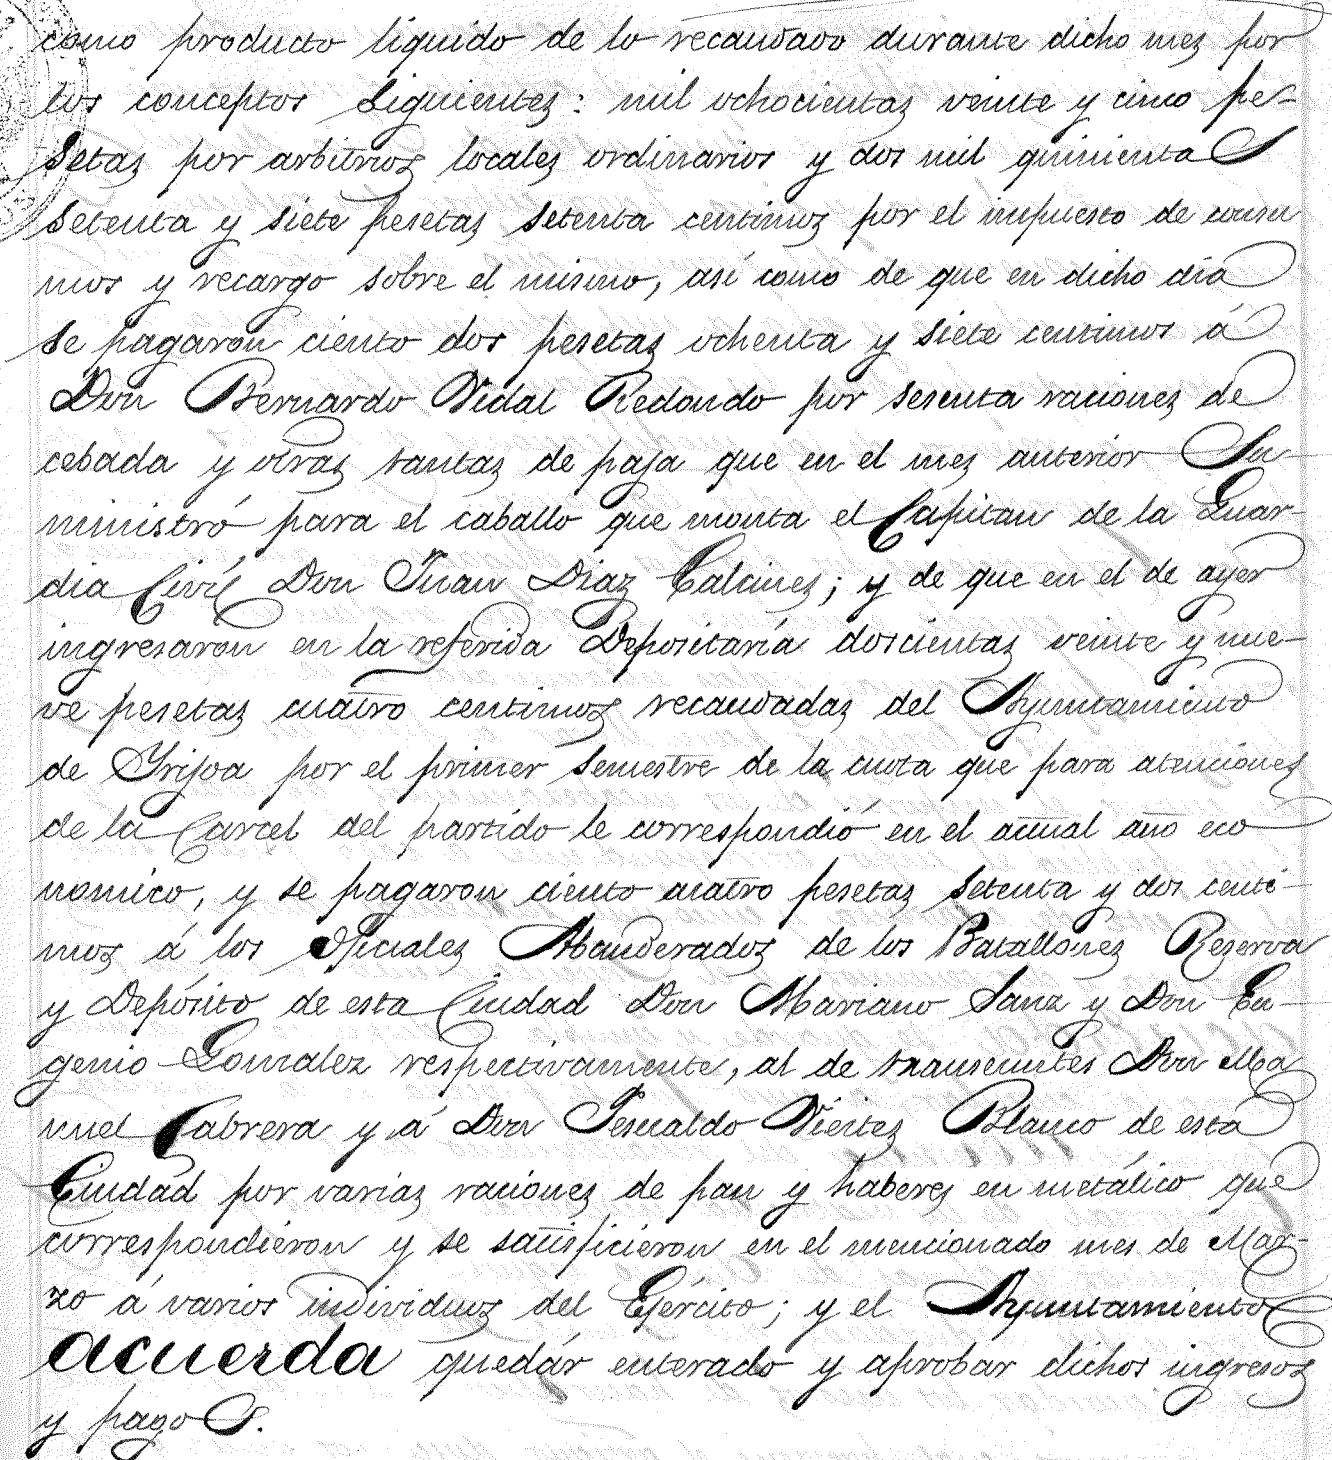 como producto líquido de lo recaudado durante dicho mes por
los conceptos siguientes: mil ochocientas veinte y cinco pe-
setas por arbitrios locales ordinarios y dos mil quinientas
setenta y siete pesetas setenta centimos por el impuesto de consu
mos y recargo sobre el mismo, así como de que en dicho día
se pagaron ciento dos pesetas ochenta y siete centimos á
Don Bernardo Vidal Redondo por sesenta raciones de
cebada y otras tantas de paja que en el mes anterior su-
ministró para el caballo que monta el Capitan de la Guar-
dia Civil Don Juan Diaz Calcines; y de que en el de ayer
ingresaron en la referida Depositaría doscientas veinte y nue-
ve pesetas cuatro centimos recaudadas del Ayuntamiento
de Yrijoa por el primer semestre de la cuota que para atenciones
de la Carcel del partido le correspondió en el actual año eco
nomico, y se pagaron ciento cuatro pesetas setenta y dos centi-
mos á los Oficiales Abanderados de los Batallones Reserva
y Depósito de esta Ciudad Don Mariano Sanz y Don Eu-
genio Gonzalez respectivamente, al de transeuntes Don Ma
nuel Cabrera y á Don Jesualdo Vieites Blanco de esta
Ciudad por varias raciones de pan y haberes en metálico que
correspondieron y se satisficieron en el mencionado mes de Mar-
zo á varios individuos del Ejército; y el Ayuntamiento
acuerda quedár enterado y aprobar dichos ingresos
y pagos.